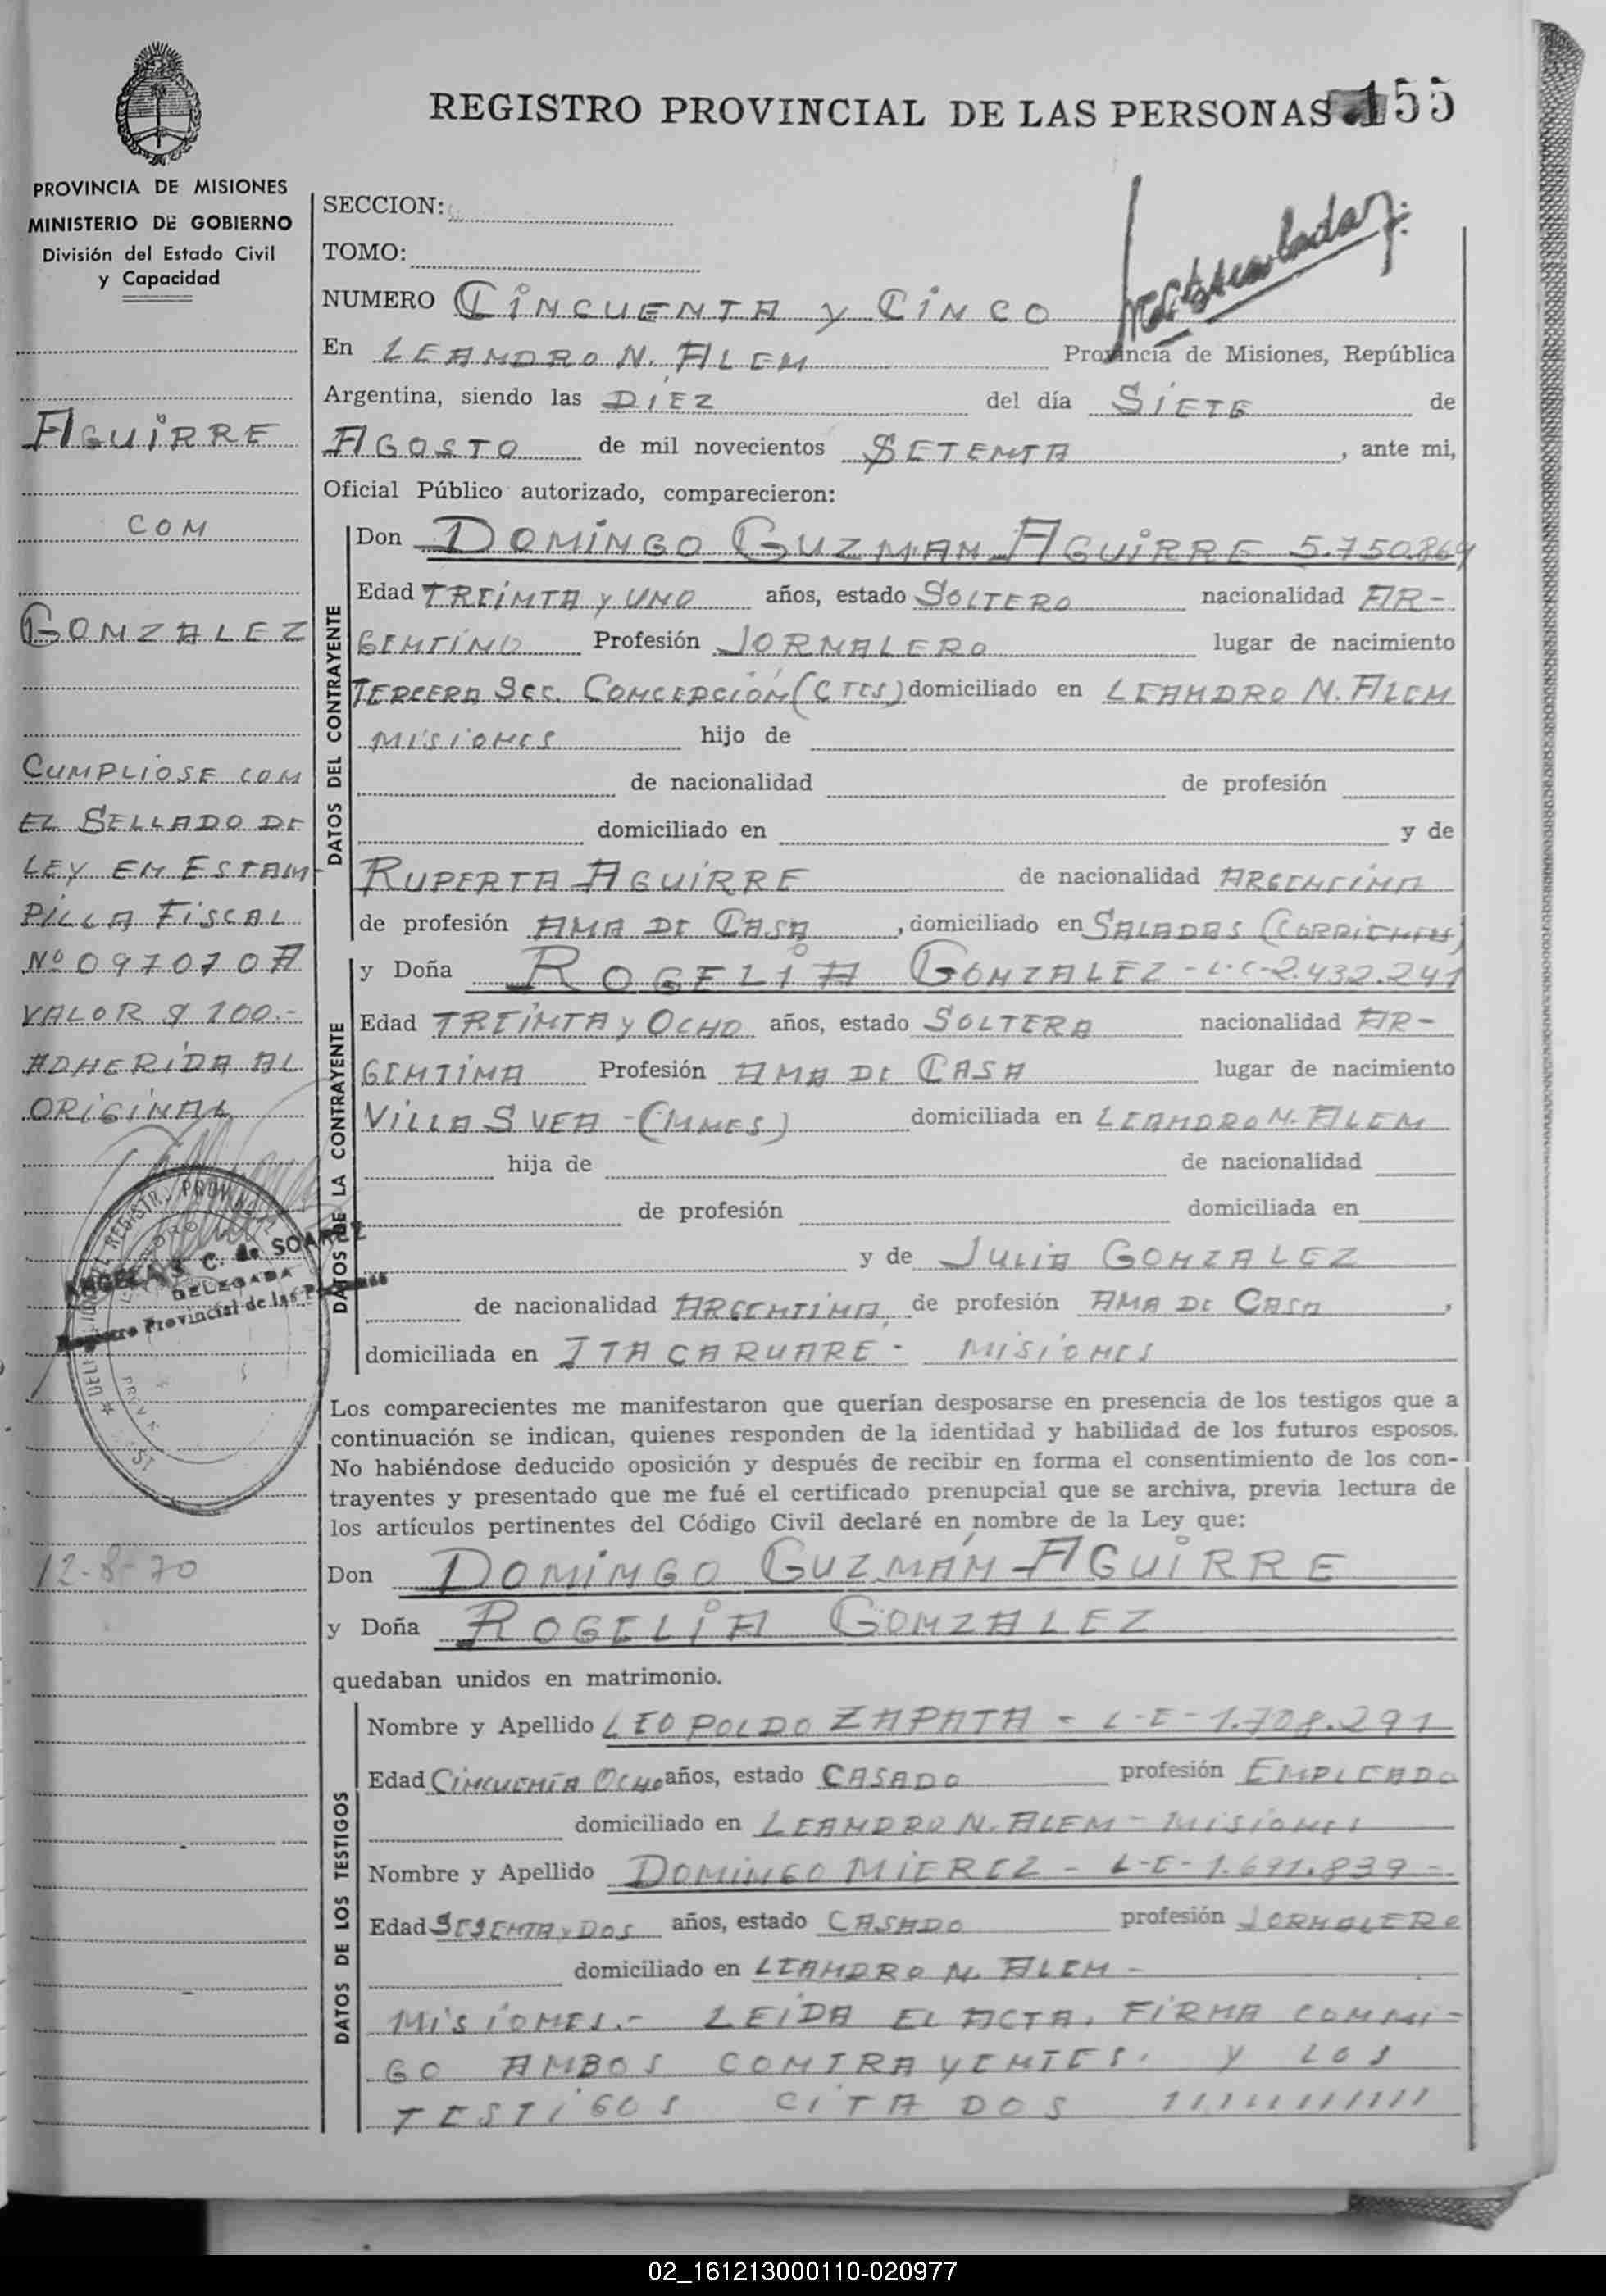 REGISTRO PROVINCIAL DE LAS PERSONAS 155
PROVINCIA DE MISIONES
MINISTERIO DE GOBIERNO
División del Estado Civil
y Capacidad
AGUIRRE
CON
GONZALEZ
CUMPLIOSE CON
EL SELLADO DE
LEY EN ESTAM-
PILLA FISCAL
Nº 097070A
VALOR $ 100.-
ADHERIDA AL
ORIGINAL
ANGELA C. de SOAREZ
DELEGADA
Registro Provincial de las Personas
12-8-70
SECCION:
TOMO:
NUMERO CINCUENTA y CINCO
En LEANDRO N. ALEM Provincia de Misiones, República
Argentina, siendo las DIEZ del día SIETE de
AGOSTO de mil novecientos SETENTA, ante mi,
Oficial Público autorizado, comparecieron:
DATOS DEL CONTRAYENTE
Don DOMINGO GUZMAN AGUIRRE 5.750.869
Edad TREINTA y UNO años, estado SOLTERO nacionalidad AR-
GENTINO Profesión JORNALERO lugar de nacimiento
TERCERA SEC. CONCEPCIÓN (CTES) domiciliado en LEANDRO N. ALEM
MISIONES hijo de
de nacionalidad de profesión
domiciliado en y de
RUPERTA AGUIRRE de nacionalidad ARGENTINA
de profesión AMA DE CASA, domiciliado en SALADAS (CORRIENTES)
DATOS DE LA CONTRAYENTE
y Doña ROGELIA GONZALEZ - L-C-2.432.241
Edad TREINTA y OCHO años, estado SOLTERA nacionalidad AR-
GENTINA Profesión AMA DE CASA lugar de nacimiento
VILLA SVEA - (MNES) domiciliada en LEANDRO N. ALEM
hija de de nacionalidad
de profesión domiciliada en
y de JULIA GONZALEZ
de nacionalidad ARGENTINA, de profesión AMA DE CASA,
domiciliada en ITACARUARE - MISIONES
Los comparecientes me manifestaron que querían desposarse en presencia de los testigos que a
continuación se indican, quienes responden de la identidad y habilidad de los futuros esposos.
No habiéndose deducido oposición y después de recibir en forma el consentimiento de los con-
trayentes y presentado que me fué el certificado prenupcial que se archiva, previa lectura de
los artículos pertinentes del Código Civil declaré en nombre de la Ley que:
Don DOMINGO GUZMÁN AGUIRRE
y Doña ROGELIA GONZALEZ
quedaban unidos en matrimonio.
DATOS DE LOS TESTIGOS
Nombre y Apellido LEOPOLDO ZAPATA - L-E-1.708.291
Edad CINCUENTA OCHO años, estado CASADO profesión EMPLEADO
domiciliado en LEANDRO N. ALEM - MISIONES
Nombre y Apellido DOMINGO MIEREZ - L-E-1.691.839-
Edad SESENTA y DOS años, estado CASADO profesión JORNALERO
domiciliado en LEANDRO N. ALEM -
MISIONES.- LEIDA EL ACTA, FIRMA CONMI-
GO AMBOS CONTRAYENTES. Y LOS
TESTIGOS CITADOS
02_161213000110-020977